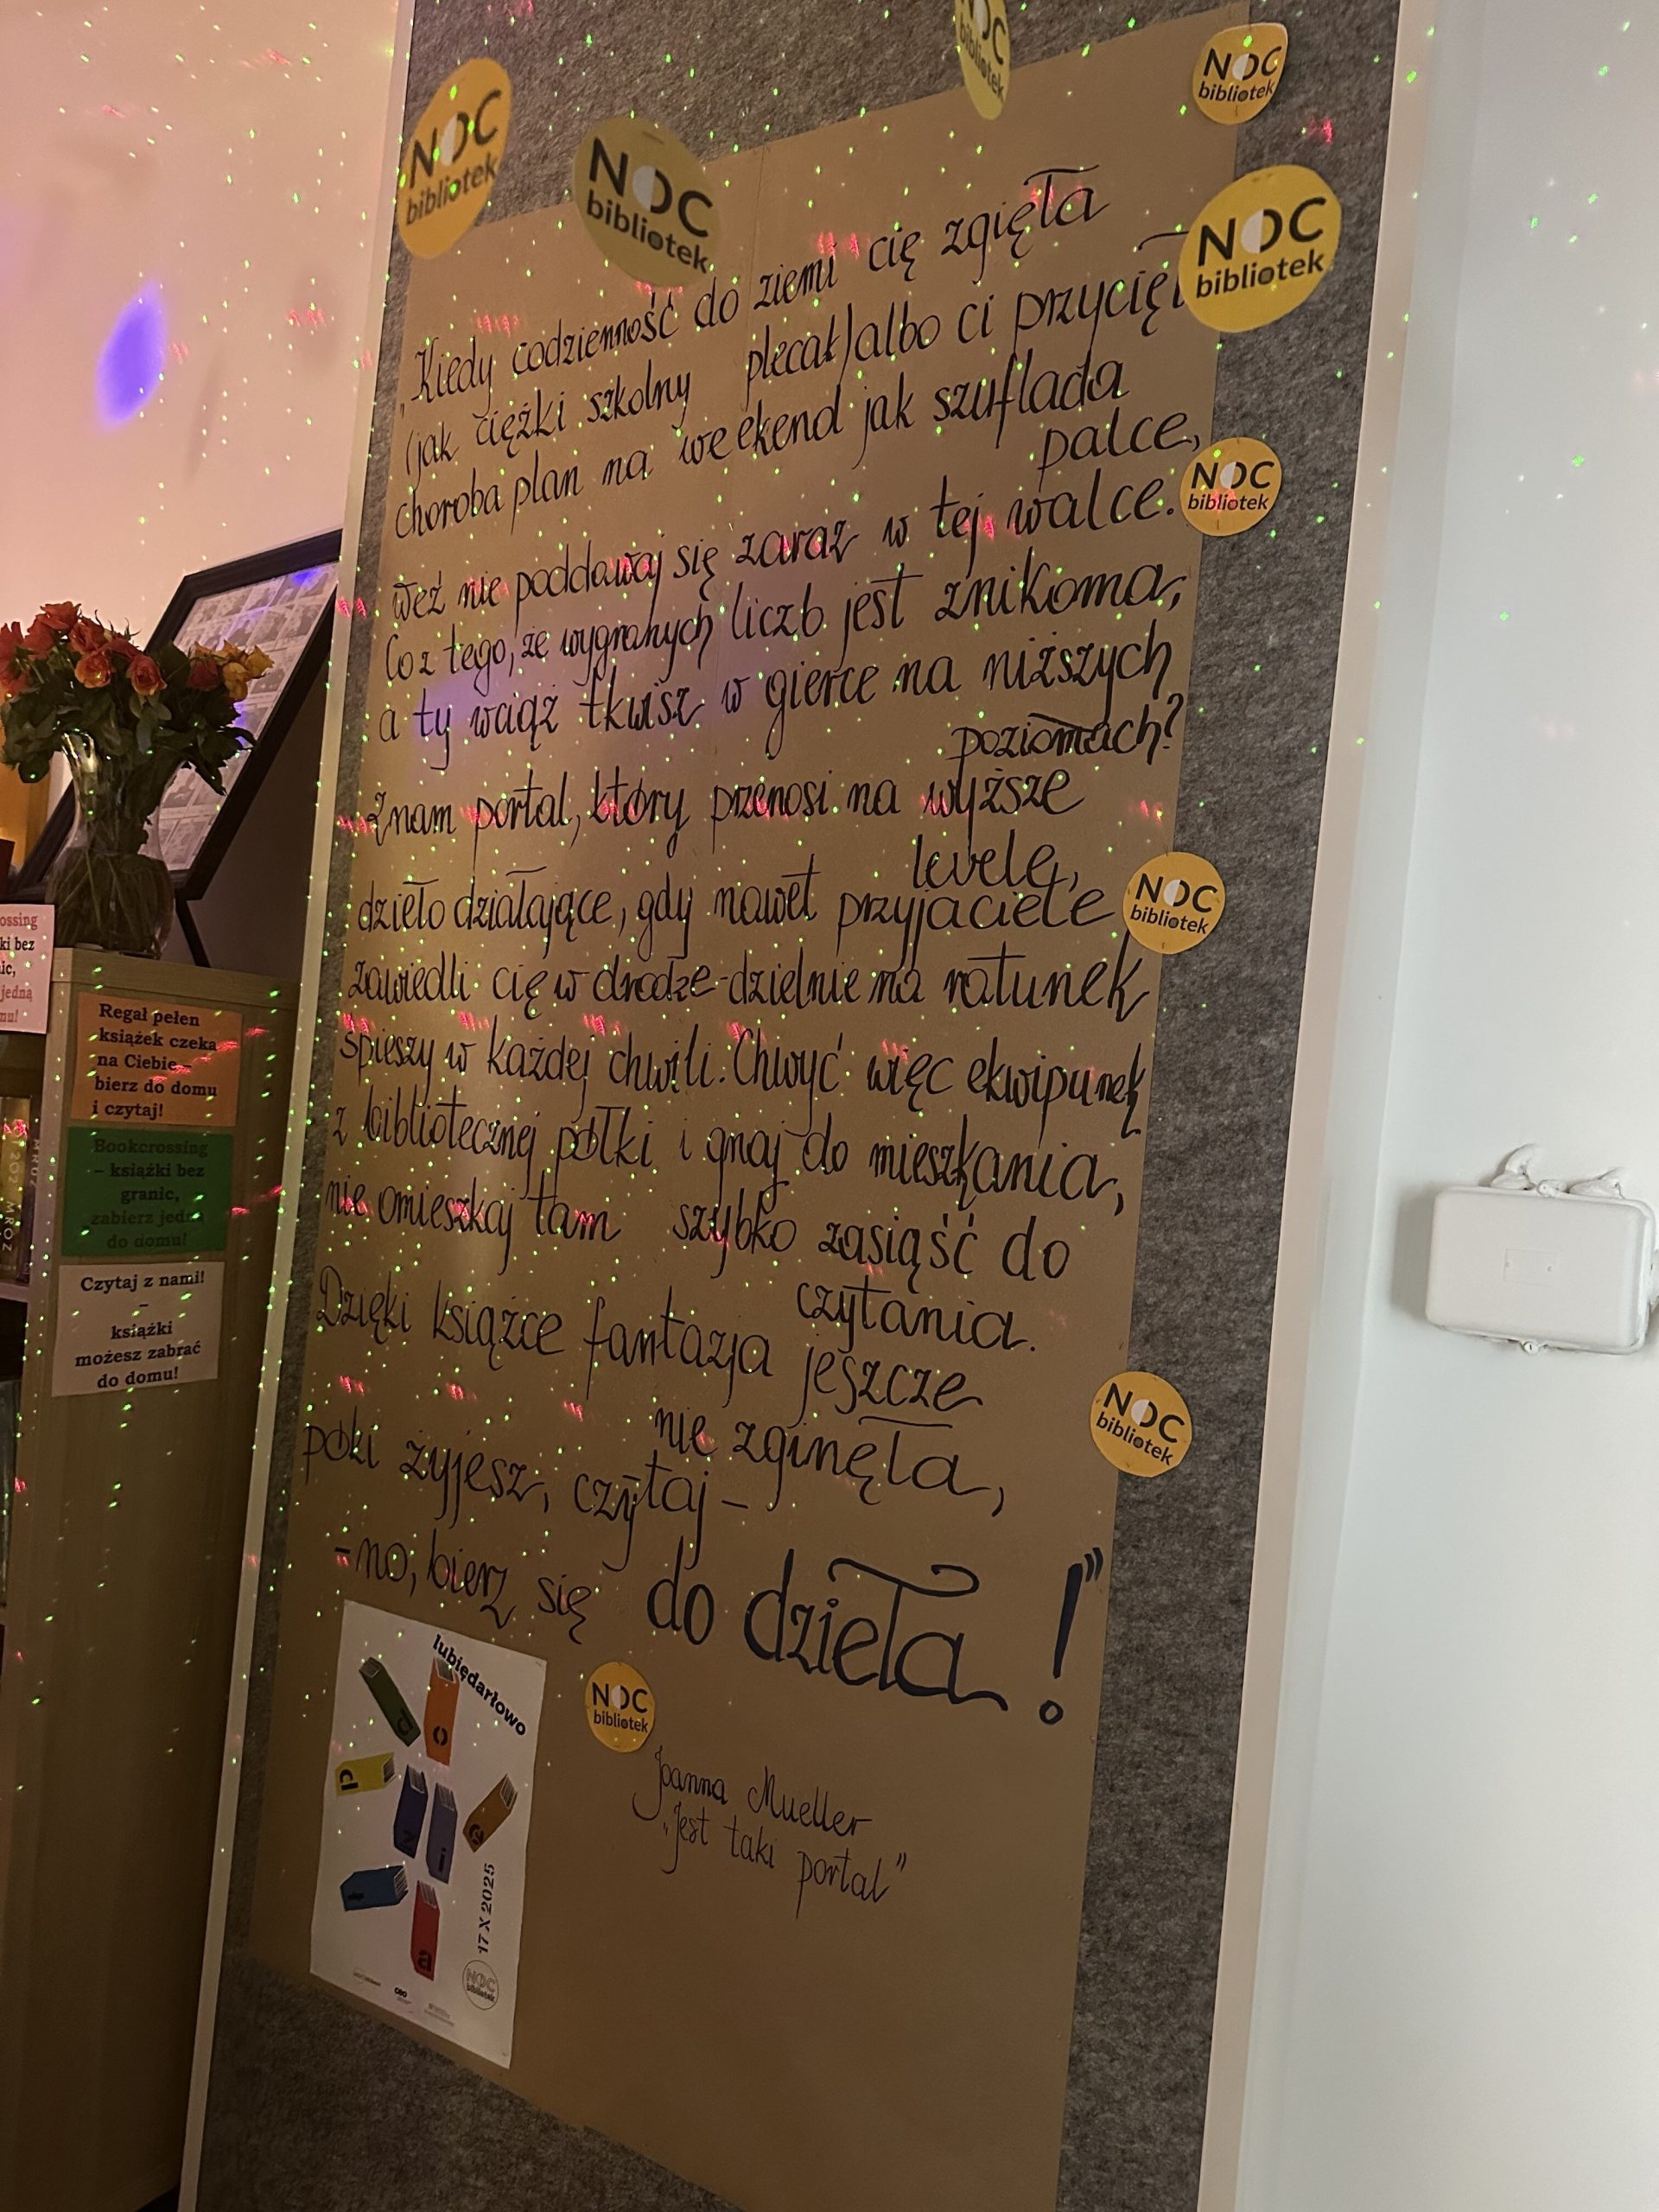 NOC
bibliotek
NOC
bibliotek
NOC
bibliotek
NOC
bibliotek
NOC
bibliotek
„Kiedy codzienność do ziemi cię zgięła
(jak ciężki szkolny plecak) albo ci przycięła
choroba plan na weekend jak szuflada
palce,
weź nie poddawaj się zaraz w tej walce.
NOC
bibliotek
Co z tego, że wygranych liczb jest znikoma,
a ty wciąż tkwisz w gierce na niższych
poziomach?
Znam portal, który przenosi na wyższe
levele,
dzieło działające, gdy nawet przyjaciele
NOC
bibliotek
zawiedli cię w drodze - dzielnie na ratunek
śpieszy w każdej chwili. Chwyć więc ekwipunek
z bibliotecznej półki i gnaj do mieszkania,
nie omieszkaj tam szybko zasiąść do
czytania.
Dzięki książce fantazja jeszcze
nie zginęła,
NOC
bibliotek
póki żyjesz, czytaj –
- no, bierz się do dzieła!”
NOC
bibliotek
Joanna Mueller
„Jest taki portal”
lubiędarłowo
d
o
p
z
i
e
a
17 X 2025
NOC
bibliotek
ossing
ki bez
ic,
jedną
mu!
Regał pełen
książek czeka
na Ciebie –
bierz do domu
i czytaj!
Bookcrossing
– książki bez
granic,
zabierz jedną
do domu!
Czytaj z nami!
–
książki
możesz zabrać
do domu!
MROZ